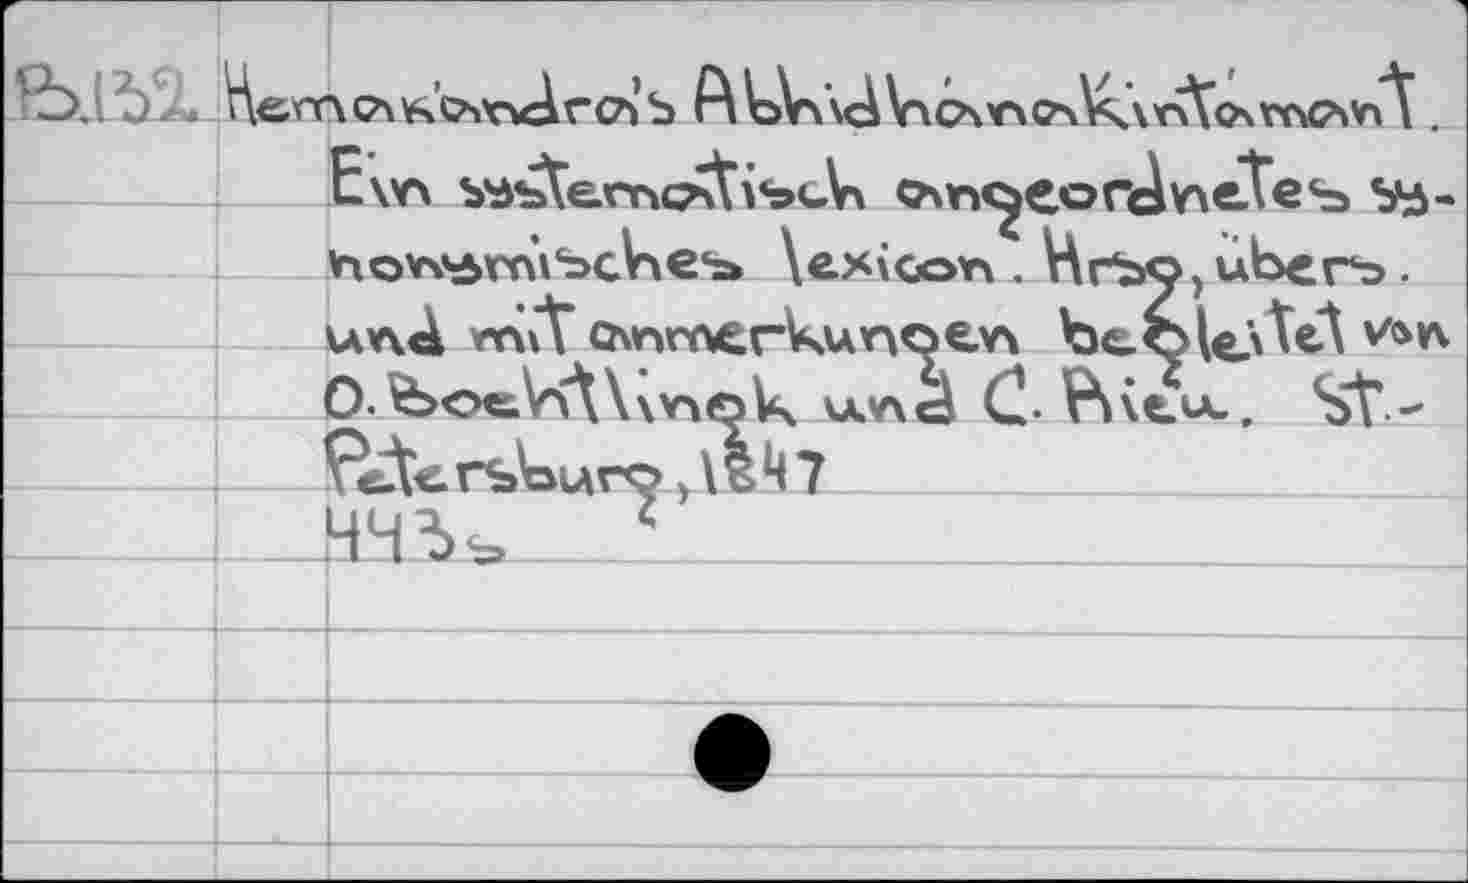 B.132. Hemak'andra's Abhidhánakintámani.
Ein systematisch angeordnetes sy-
nonymisches lexicon. Hrsg, übers.
und mit anmerkungen begleitet von
O. Boehtlingk und C. Rieu. St.-
Petersburg, 1847
443 s